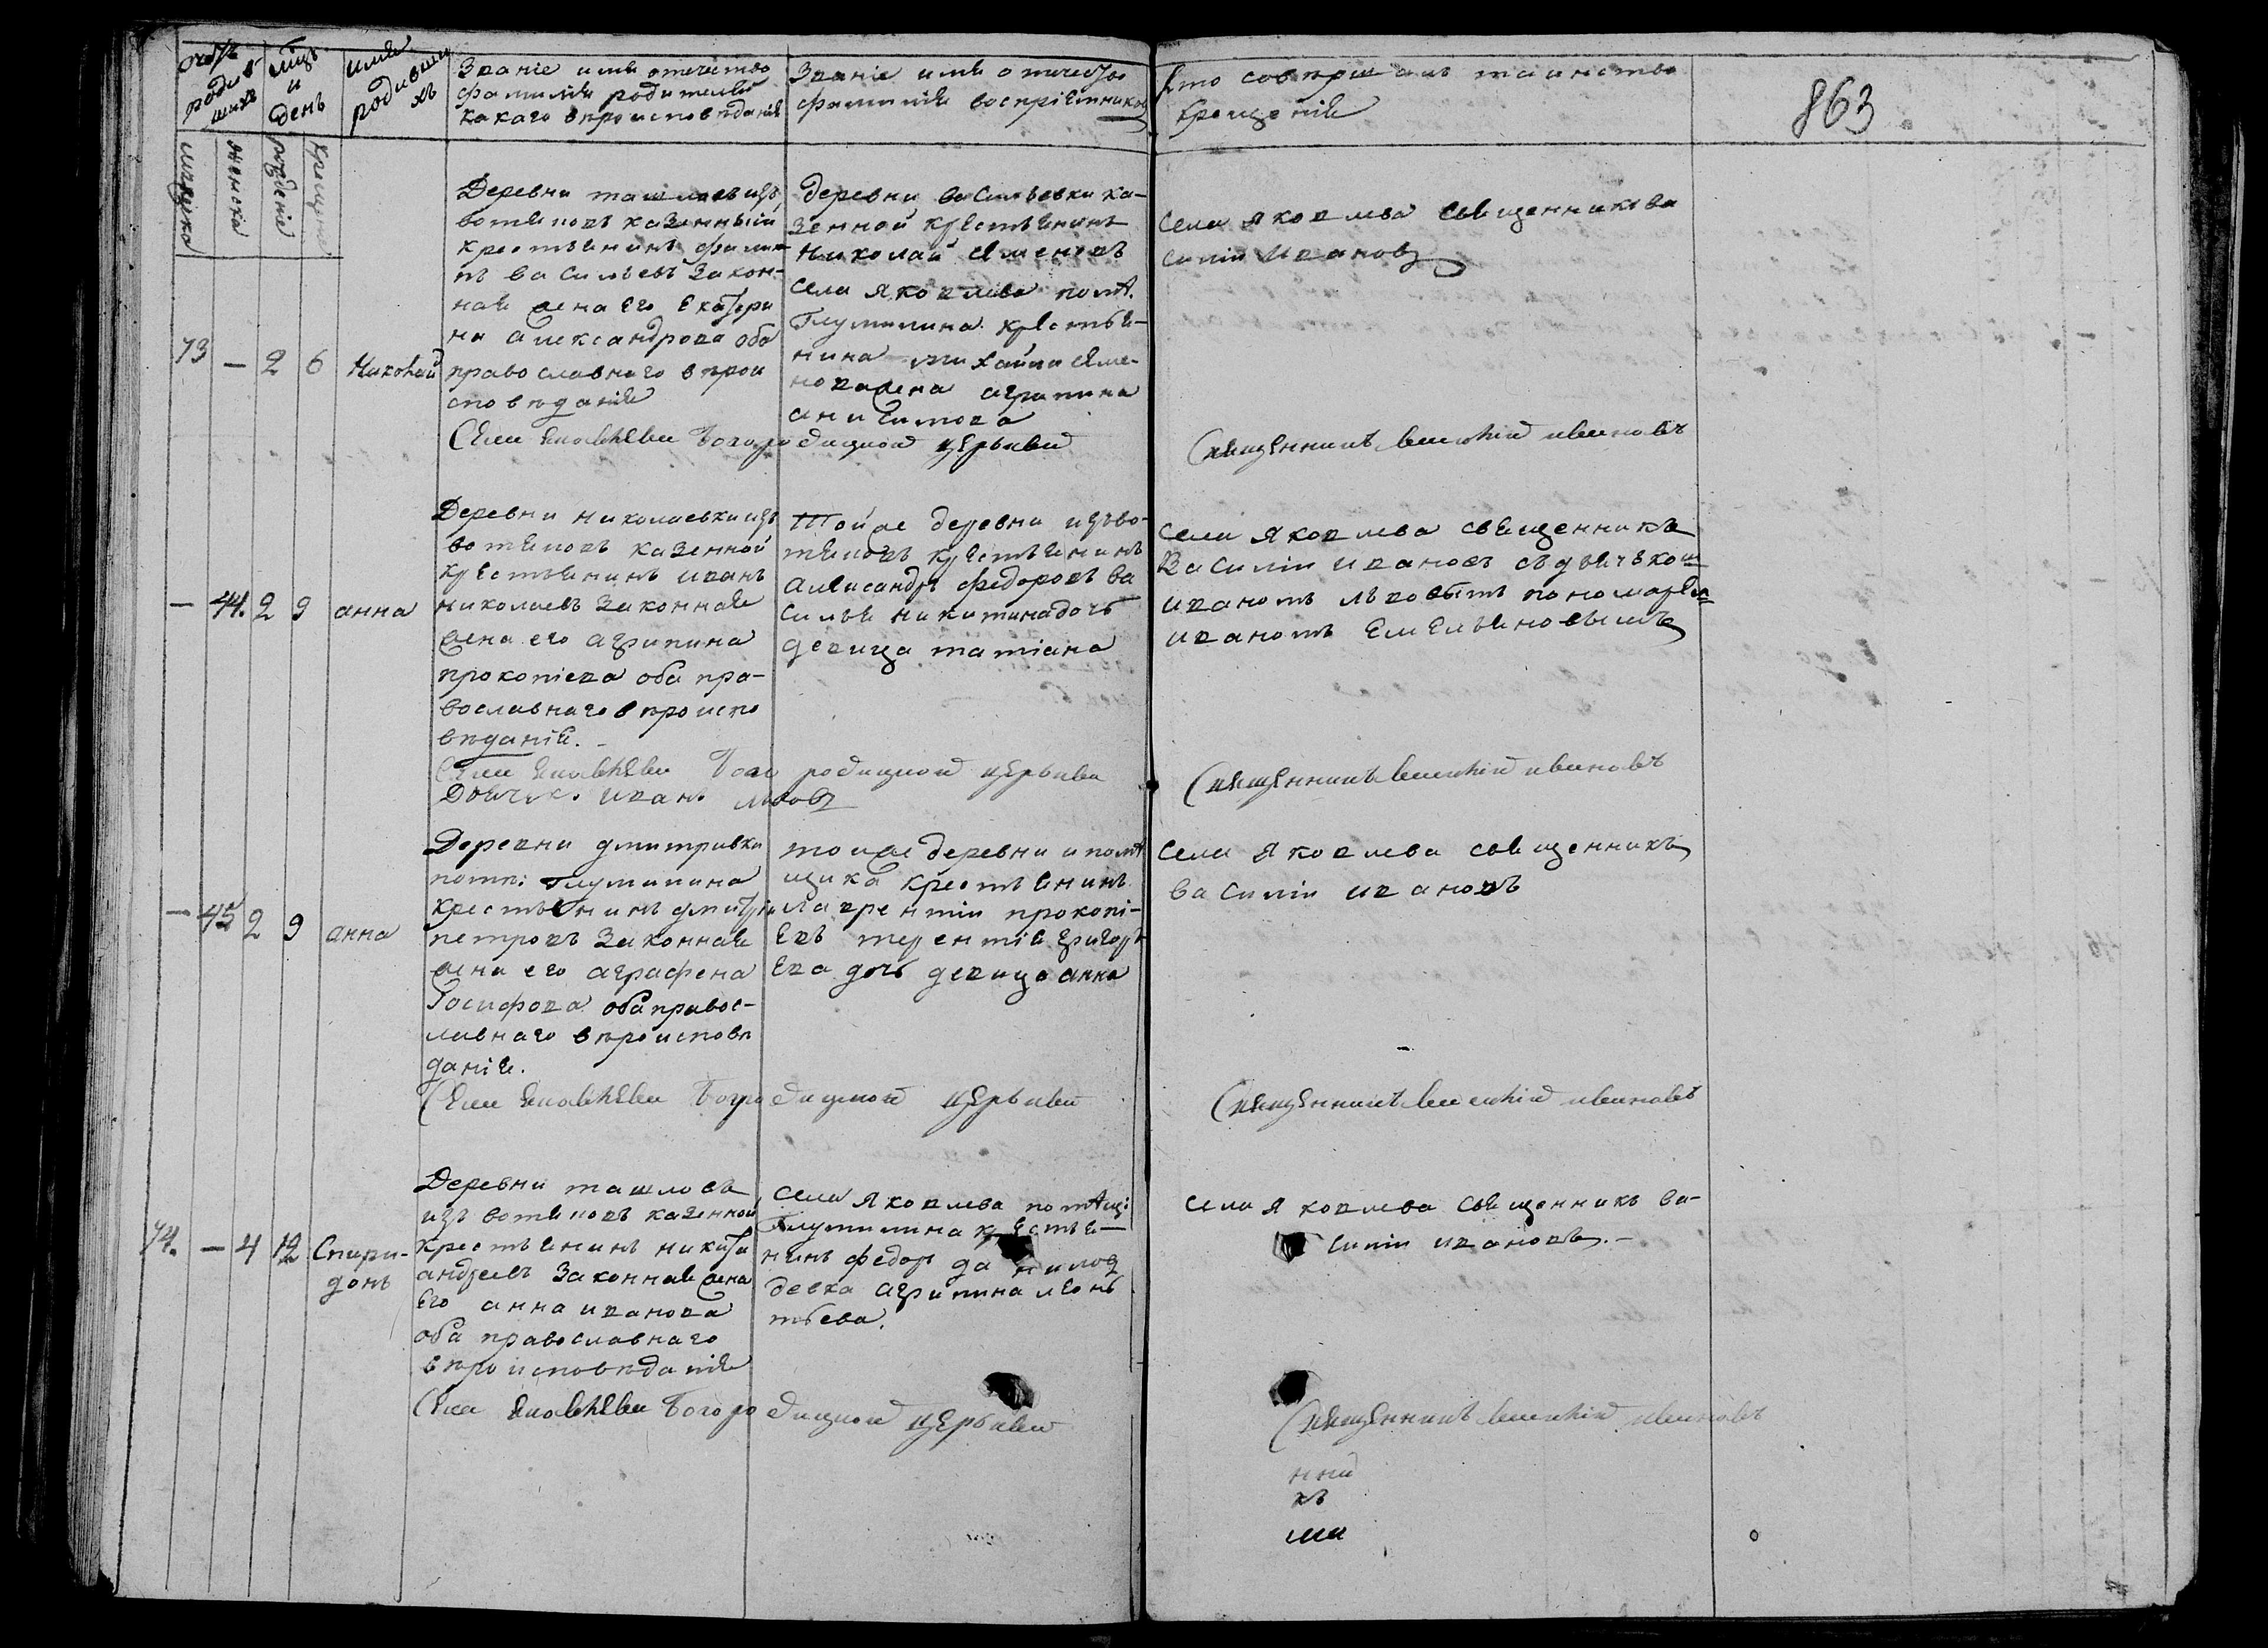 Звание имя отечество
фамилия родителей
какаго вероисповедания
Звание имя отечество
фамилия восприемников
Кто совершал таинство
крещения
863
мужска
женска
рождение
крещение
73 — 2 6 Николай
Деревни ташлаев изъ
вотяковъ казенный
крестьянинъ
въ Васильевъ закон-
ная жена его Екатери
на александрова оба
православнаго верои
споведания
деревни Васильевки ка-
зенной крестьянинъ
Николай Семеновъ
села яковлева
Глумилина крестья-
нина михайла Семе-
нова жена агрипина
анисимова
села яковлева священникъ ва
силий Ивановъ
Села Яковлева Богородицкой церькви
Священникъ василий ивановъ
— 44. 2 9 анна
Деревни николаевки изъ
вотяковъ казенной
крестьянинъ иванъ
николаевъ законная
жена его агрипина
прокопиева оба пра-
вославнаго вероиспо
ведания.
Тойже деревни изъ во-
тяковъ крестьянинъ
александръ федоровъ ва
силья никитина дочь
девица татиана
села яковлева священникъ
Василий ивановъ съ дьячком
иваномъ львовымъ пономарем
иваномъ Емельяновымъ
Села Яковлева Богородицкой церькви
Священникъ василий ивановъ
Дьячек иванъ львовъ
— 45 2 9 анна
Деревни дмитривки
помещ: Глумилина
крестьянинъ дмитрий
петровъ законная
жена его аграфена
Иосифова оба правос-
лавнаго вероиспове
дания.
тойже деревни и поме
щика крестьянинъ
лаврентий прокопи-
евъ терентия григорь
ева дочь девица анна
села яковлева священникъ
василий ивановъ
Села Яковлева Богородицкой церькви
Священникъ василий ивановъ
74. — 4 12 Спири-
донъ
Деревни ташлоевъ
изъ вотяковъ казенной
крестьянинъ никита
андреевъ законная жена
его анна иванова
оба православнаго
вероисповедания
села яковлева помещ:
Глумилина крестья-
нинъ федор данилов
девка агрипина леонь
тьева.
села яковлева священникъ ва-
силий ивановъ.—
Села Яковлева Богородицкой церькви
Священникъ василий ивановъ
нни
къ